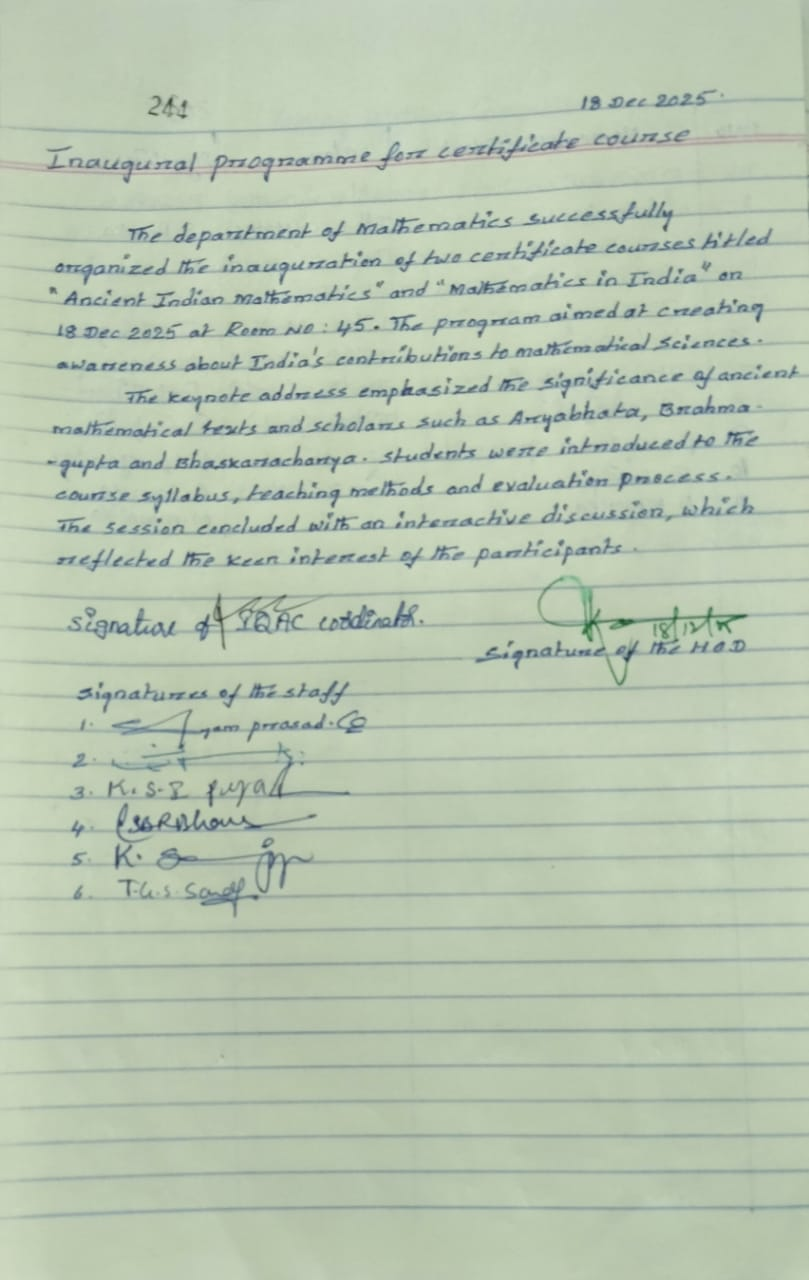 244
18 Dec 2025.
Inaugural programme for certificate course
The department of Mathematics successfully
organized the inauguration of two certificate courses titled
"Ancient Indian Mathematics" and "Mathematics in India" on
18 Dec 2025 at Room No : 45. The program aimed at creating
awareness about India's contributions to mathematical sciences.
The keynote address emphasized the significance of ancient
mathematical texts and scholars such as Aryabhata, Brahma-
-gupta and Bhaskaracharya. Students were introduced to the
course syllabus, teaching methods and evaluation process.
The session concluded with an interactive discussion, which
reflected the keen interest of the participants.
Signature of IQAC
18/12/25
Signature of the H.O.D
Signatures of the staff
1. prasad.
2.
3. K.S.
4.
5. K.
6. T.G.S.